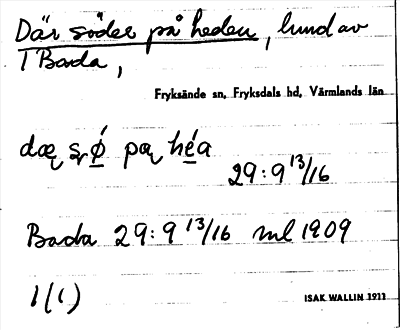 Där söder på heden, lund av
T Bada,
Fryksände sn, Fryksdals hd, Värmlands län
29:9 13/16
Bada 29:9 13/16 ml 1909
1(1)
ISAK WALLIN 1911